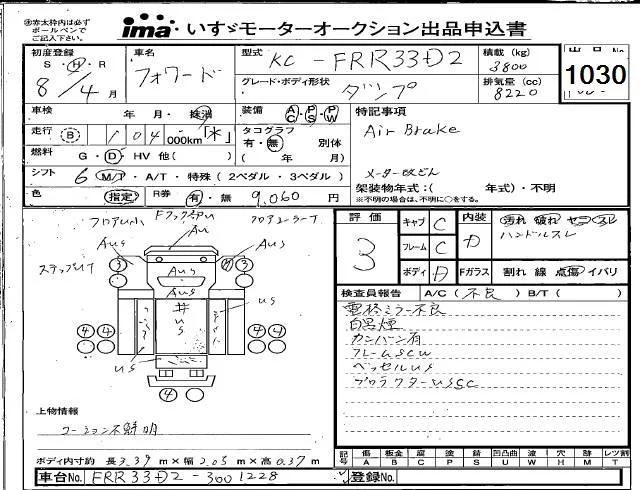 ※赤太枠内は必ず
ボールペンで
ご記入下さい。
ima いすゞモーターオークション出品申込書
初度登録 S・H・R 8/4月
車名 フォワード
型式 KC-FRR33D2
積載 (kg) 3800
グレード・ボディ形状 ダンプ
排気量 (cc) 8220
出品No. 1030
車検 年・月・抹消
装備 AC・PS・PW
特記事項
Air Brake
メーター改ざん
走行 B 104 000km「*」
タコグラフ 有・無 別体
( 年 月)
燃料 G・D・HV 他( )
シフト 6 M/T・A/T・特殊(2ペダル・3ペダル)
架装物年式:( 年式)・不明
※不明の場合は、不明に○をする。
色 指定
R券 有・無 9,060円
AUS
AUS
AUS
ステップUT
US
US
US
3
4 4
4 4
4
評価 3
キャブ C
フレーム C
ボディ D
内装 D
汚れ 破れ
ハンドルスレ
Fガラス 割れ 線 点傷 イバリ
検査員報告 A/C(不良) B/T( )
電格ミラー不良
白黒煙
カンバン有
フレームSCW
ベッセルUS
プロテクターUSC
上物情報
コーション不鮮明
ボディ内寸約 長3.39m×幅2.05m×高0.37m
車台No. FRR33D2-3001228
記号 傷A 板金B 腐C 塗P 錆S 凹U 凸凹曲W 塗W 穴H 跡M レツ割T
登録No.